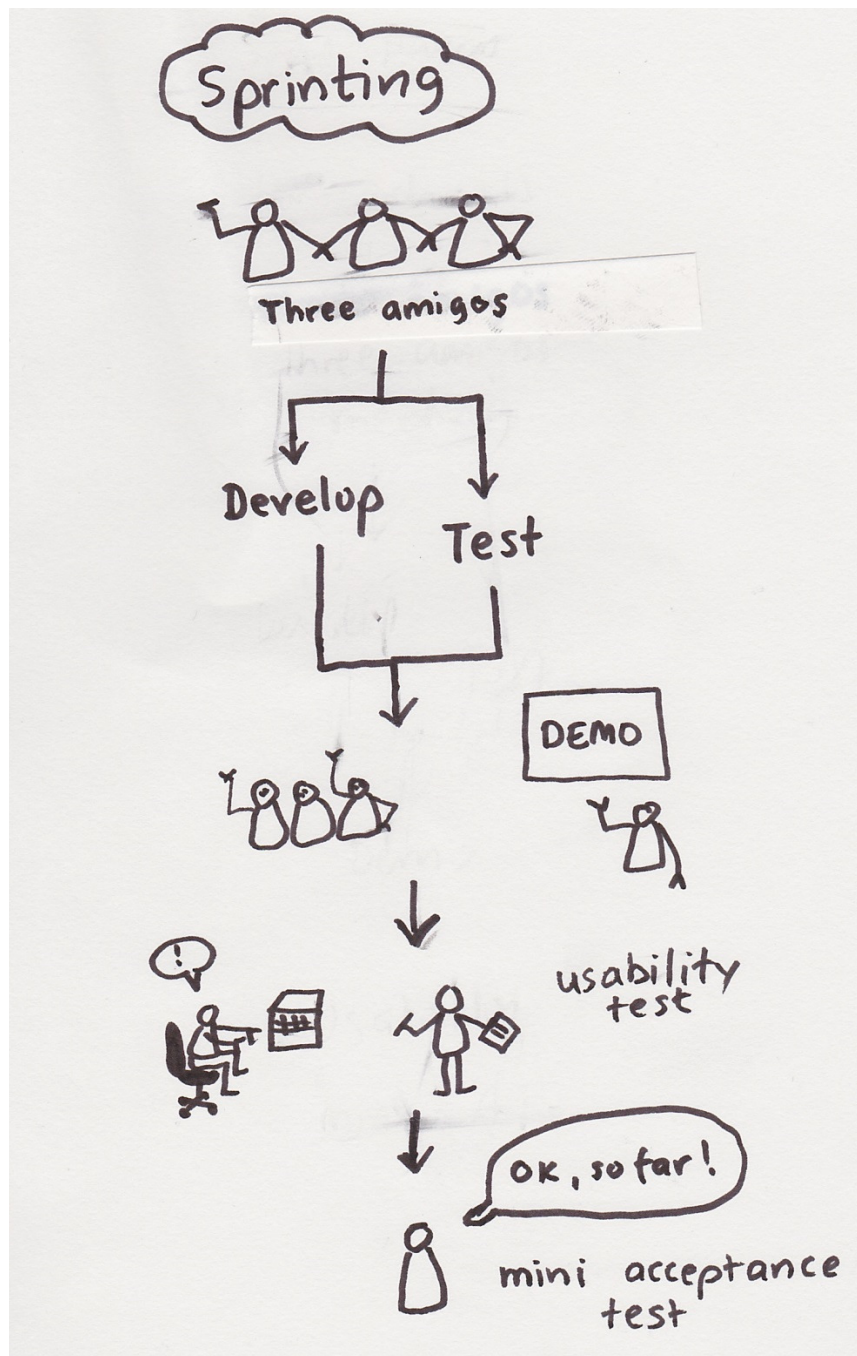 Sprinting
Three amigos
Develop
Test
DEMO
!
usability
test
OK, so far!
mini acceptance
test